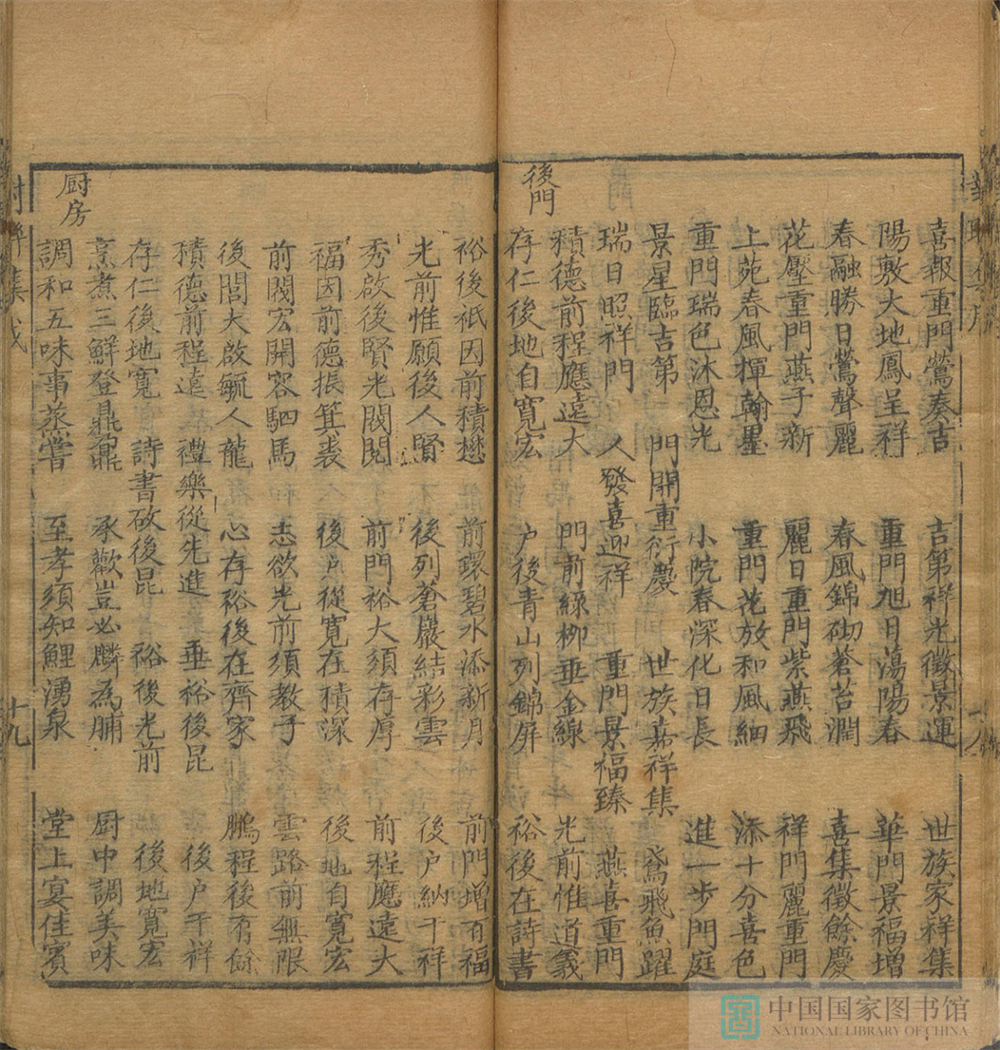 喜報重門鶯奏吉 吉第祥光徵景運 世族家祥集
陽敷大地鳳呈祥 重門旭日蕩陽春 華門景福增
春融勝日鶯聲麗 春風錦砌蒼苔潤 喜集徵餘慶
花壓重門燕子新 麗日重門紫燕飛 祥門麗重門
上苑春風揮翰墨 重門花放和風細 添十分喜色
重門瑞色沐恩光 小院春深化日長 進一步門庭
景星臨吉第 門開重衍慶 世族嘉祥集 鳶飛魚躍
瑞日照祥門 人發喜迎祥 重門景福臻 燕喜重門
後門
積德前程應遠大 門前綠柳垂金線 光前惟道義
存仁後地自寬宏 戶後青山列錦屏 裕後在詩書
裕後祇因前積懋 前環碧水添新月 前門增百福
光前惟願後人賢 後列蒼巖結彩雲 後户納千祥
秀啟後賢光閥閱 前門裕大須存厚 前程應遠大
福因前德振箕裘 後户從寬在積深 後地自寬宏
前閥宏開容駟馬 志欲光前須教子 雲路前無限
後閭大啟毓人龍 心存裕後在齊家 鵬程後有餘
積德前程遠 禮樂從先進 垂裕後昆 後户千祥
存仁後地寬 詩書啟後昆 裕後光前 後地寬宏
厨房
烹煮三鮮登鼎鼐 承歡豈必麟為脯 厨中調美味
調和五味事蒸嘗 至孝須知鯉湧泉 堂上宴佳賓
十九
中国国家图书馆
NATIONAL LIBRARY OF CHINA